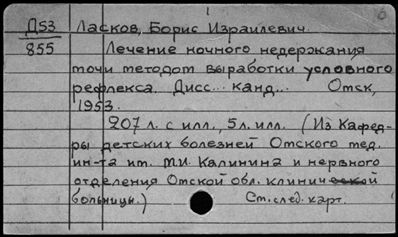 1
Д53 Ласков, Борис Израилевич.
855 Лечение ночного недержания
мочи методом выработки условного
рефлекса. Дисс... канд... Омск,
1953.
207 л. с илл., 5 л. илл. (Из Кафед-
ры детских болезней Омского мед.
ин-та им. М.И. Калинина и нервного
отделения Омской обл. клинической
больницы.) См. след. карт.